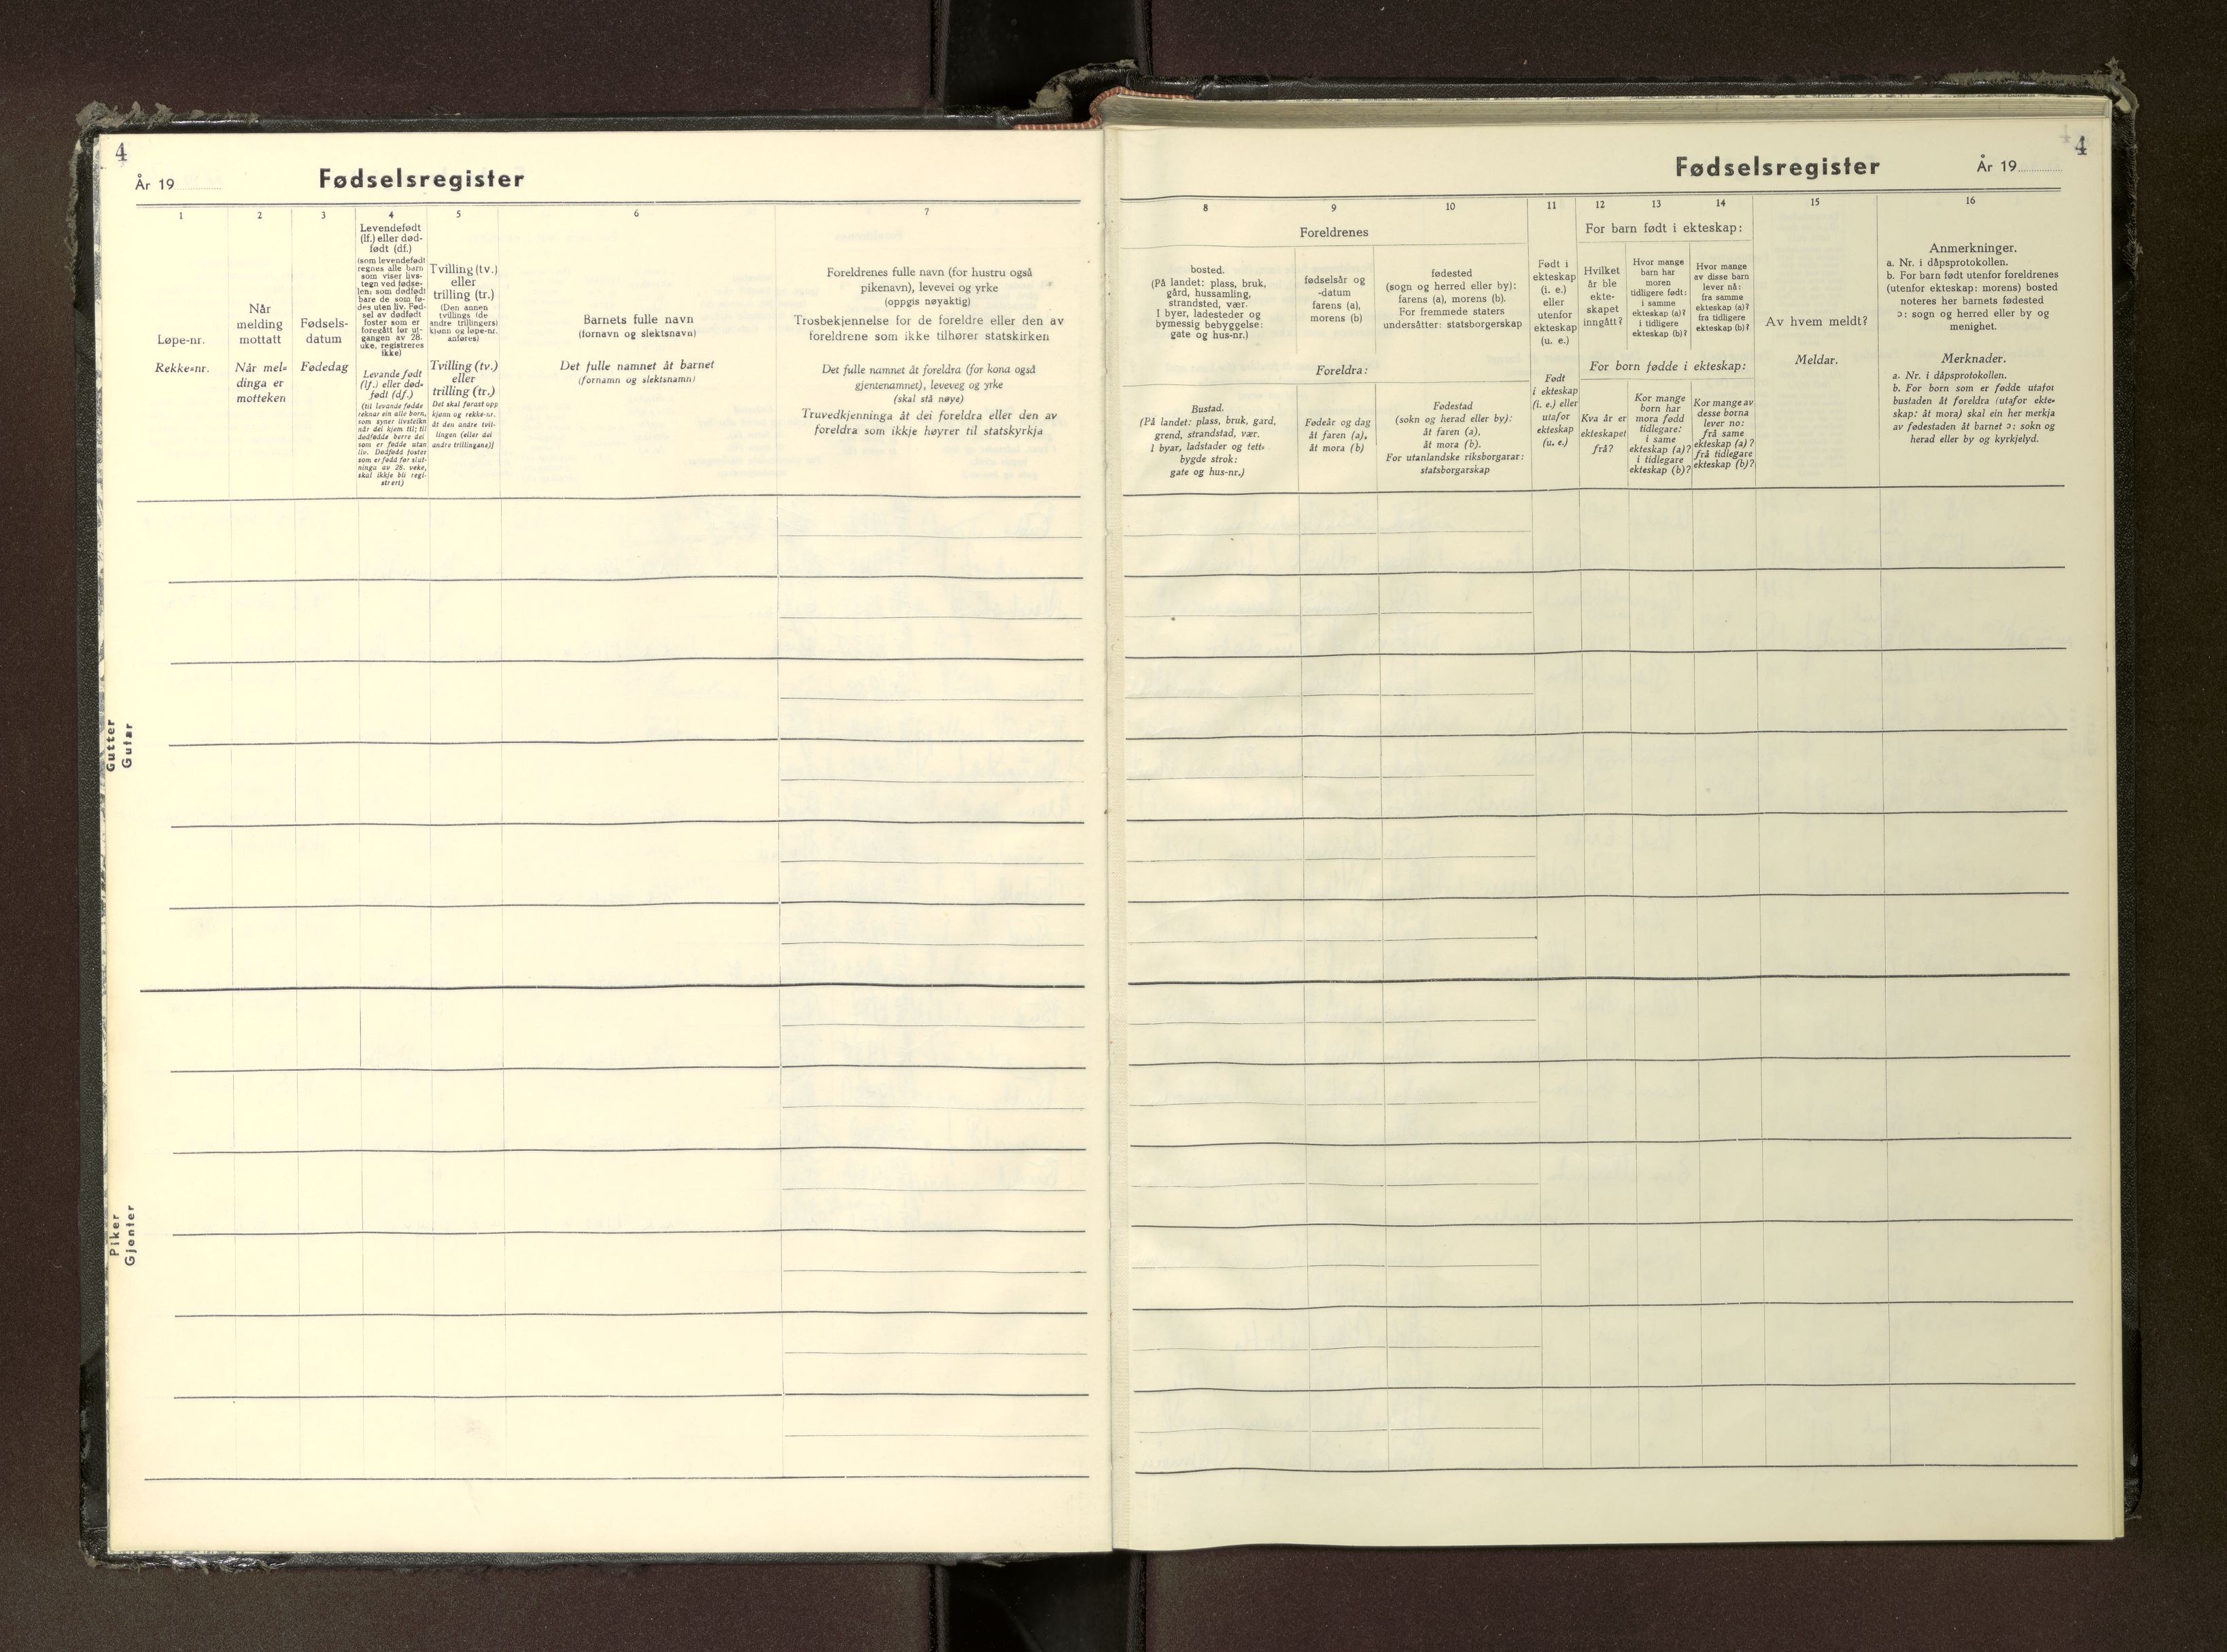 4
År 19
Fødselsregister
1
2
3
4
5
6
7
Løpe-nr.
Rekke-nr.
Når
melding
mottatt
Når mel-
dinga er
motteken
Fødsels-
datum
Fødedag
Levendefødt
(lf.) eller død-
født (df.)
(som levendefødt
regnes alle barn
som viser livs-
tegn ved fødse-
len; som dødfødt
bare de som fø-
des uten liv. Fød-
sel av dødfødt
foster som er
foregått før ut-
gangen av 28.
uke, registreres
ikke)
Levande født
(lf.) eller død-
født (df.)
(til levande fødde
reknar ein alle born,
som syner livsteikn
når dei kjem til; til
dødfødde berre dei
som er fødde utan
liv. Dødfødd foster
som er fødd før slut-
ninga av 28. veke,
skal ikkje bli regi-
strert)
Tvilling (tv.)
eller
trilling (tr.)
(Den annen
tvillings (de
andre trillingers)
kjønn og løpe-nr.
anføres)
Tvilling (tv.)
eller
trilling (tr.)
Det skal førast opp
kjønn og rekke-nr.
åt den andre tvil-
lingen (eller dei
andre trillingane)]
Barnets fulle navn
(fornavn og slektsnavn)
Det fulle namnet åt barnet
(fornamn og slektsnamn)
Foreldrenes fulle navn (for hustru også
pikenavn), levevei og yrke
(oppgis nøyaktig)
Trosbekjennelse for de foreldre eller den av
foreldrene som ikke tilhører statskirken
Det fulle namnet åt foreldra (for kona også
gjentenamnet), leveveg og yrke
(skal stå nøye)
Truvedkjenninga åt dei foreldra eller den av
foreldra som ikkje høyrer til statskyrkja
Gutter
Gutar
Piker
Gjenter
4
Fødselsregister
År 19
8
9
10
11
12
13
14
15
16
Foreldrenes
bosted.
(På landet: plass, bruk,
gård, hussamling,
strandsted, vær.
I byer, ladesteder og
bymessig bebyggelse:
gate og hus-nr.)
fødselsår og
-datum
farens (a),
morens (b)
fødested
(sogn og herred eller by):
farens (a), morens (b).
For fremmede staters
undersåtter: statsborgerskap
Foreldra:
Bustad.
(På landet: plass, bruk, gard,
grend, strandstad, vær.
I byar, ladstader og tett-
bygde strok:
gate og hus-nr.)
Fødeår og dag
åt faren (a),
åt mora (b)
Fødestad
(sokn og herad eller by):
åt faren (a),
åt mora (b).
For utanlandske riksborgarar:
statsborgarskap
Født i
ekteskap
(i. e.)
eller
utenfor
ekteskap
(u. e.)
Født
i ekteskap
(i. e.) eller
utafor
ekteskap
(u. e.)
For barn født i ekteskap:
Hvilket
år ble
ekte-
skapet
inngått?
Hvor mange
barn har
moren
tidligere født:
i samme
ekteskap (a)?
i tidligere
ekteskap (b)?
Hvor mange
av disse barn
lever nå:
fra samme
ekteskap (a)?
fra tidligere
ekteskap (b)?
For born fødde i ekteskap:
Kva år er
ekteskapet
frå?
Kor mange
born har
mora fødd
tidlegare:
i same
ekteskap (a)?
i tidlegare
ekteskap (b)?
Kor mange av
desse borna
lever no:
frå same
ekteskap (a)?
frå tidlegare
ekteskap (b)?
Av hvem meldt?
Meldar.
Anmerkninger.
a. Nr. i dåpsprotokollen.
b. For barn født utenfor foreldrenes
(utenfor ekteskap: morens) bosted
noteres her barnets fødested
ɔ: sogn og herred eller by og
menighet.
Merknader.
a. Nr. i dåpsprotokollen.
b. For born som er fødde utafor
bustaden åt foreldra (utafor ekte-
skap: åt mora) skal ein her merkja
av fødestaden åt barnet ɔ: sokn og
herad eller by og kyrkjelyd.